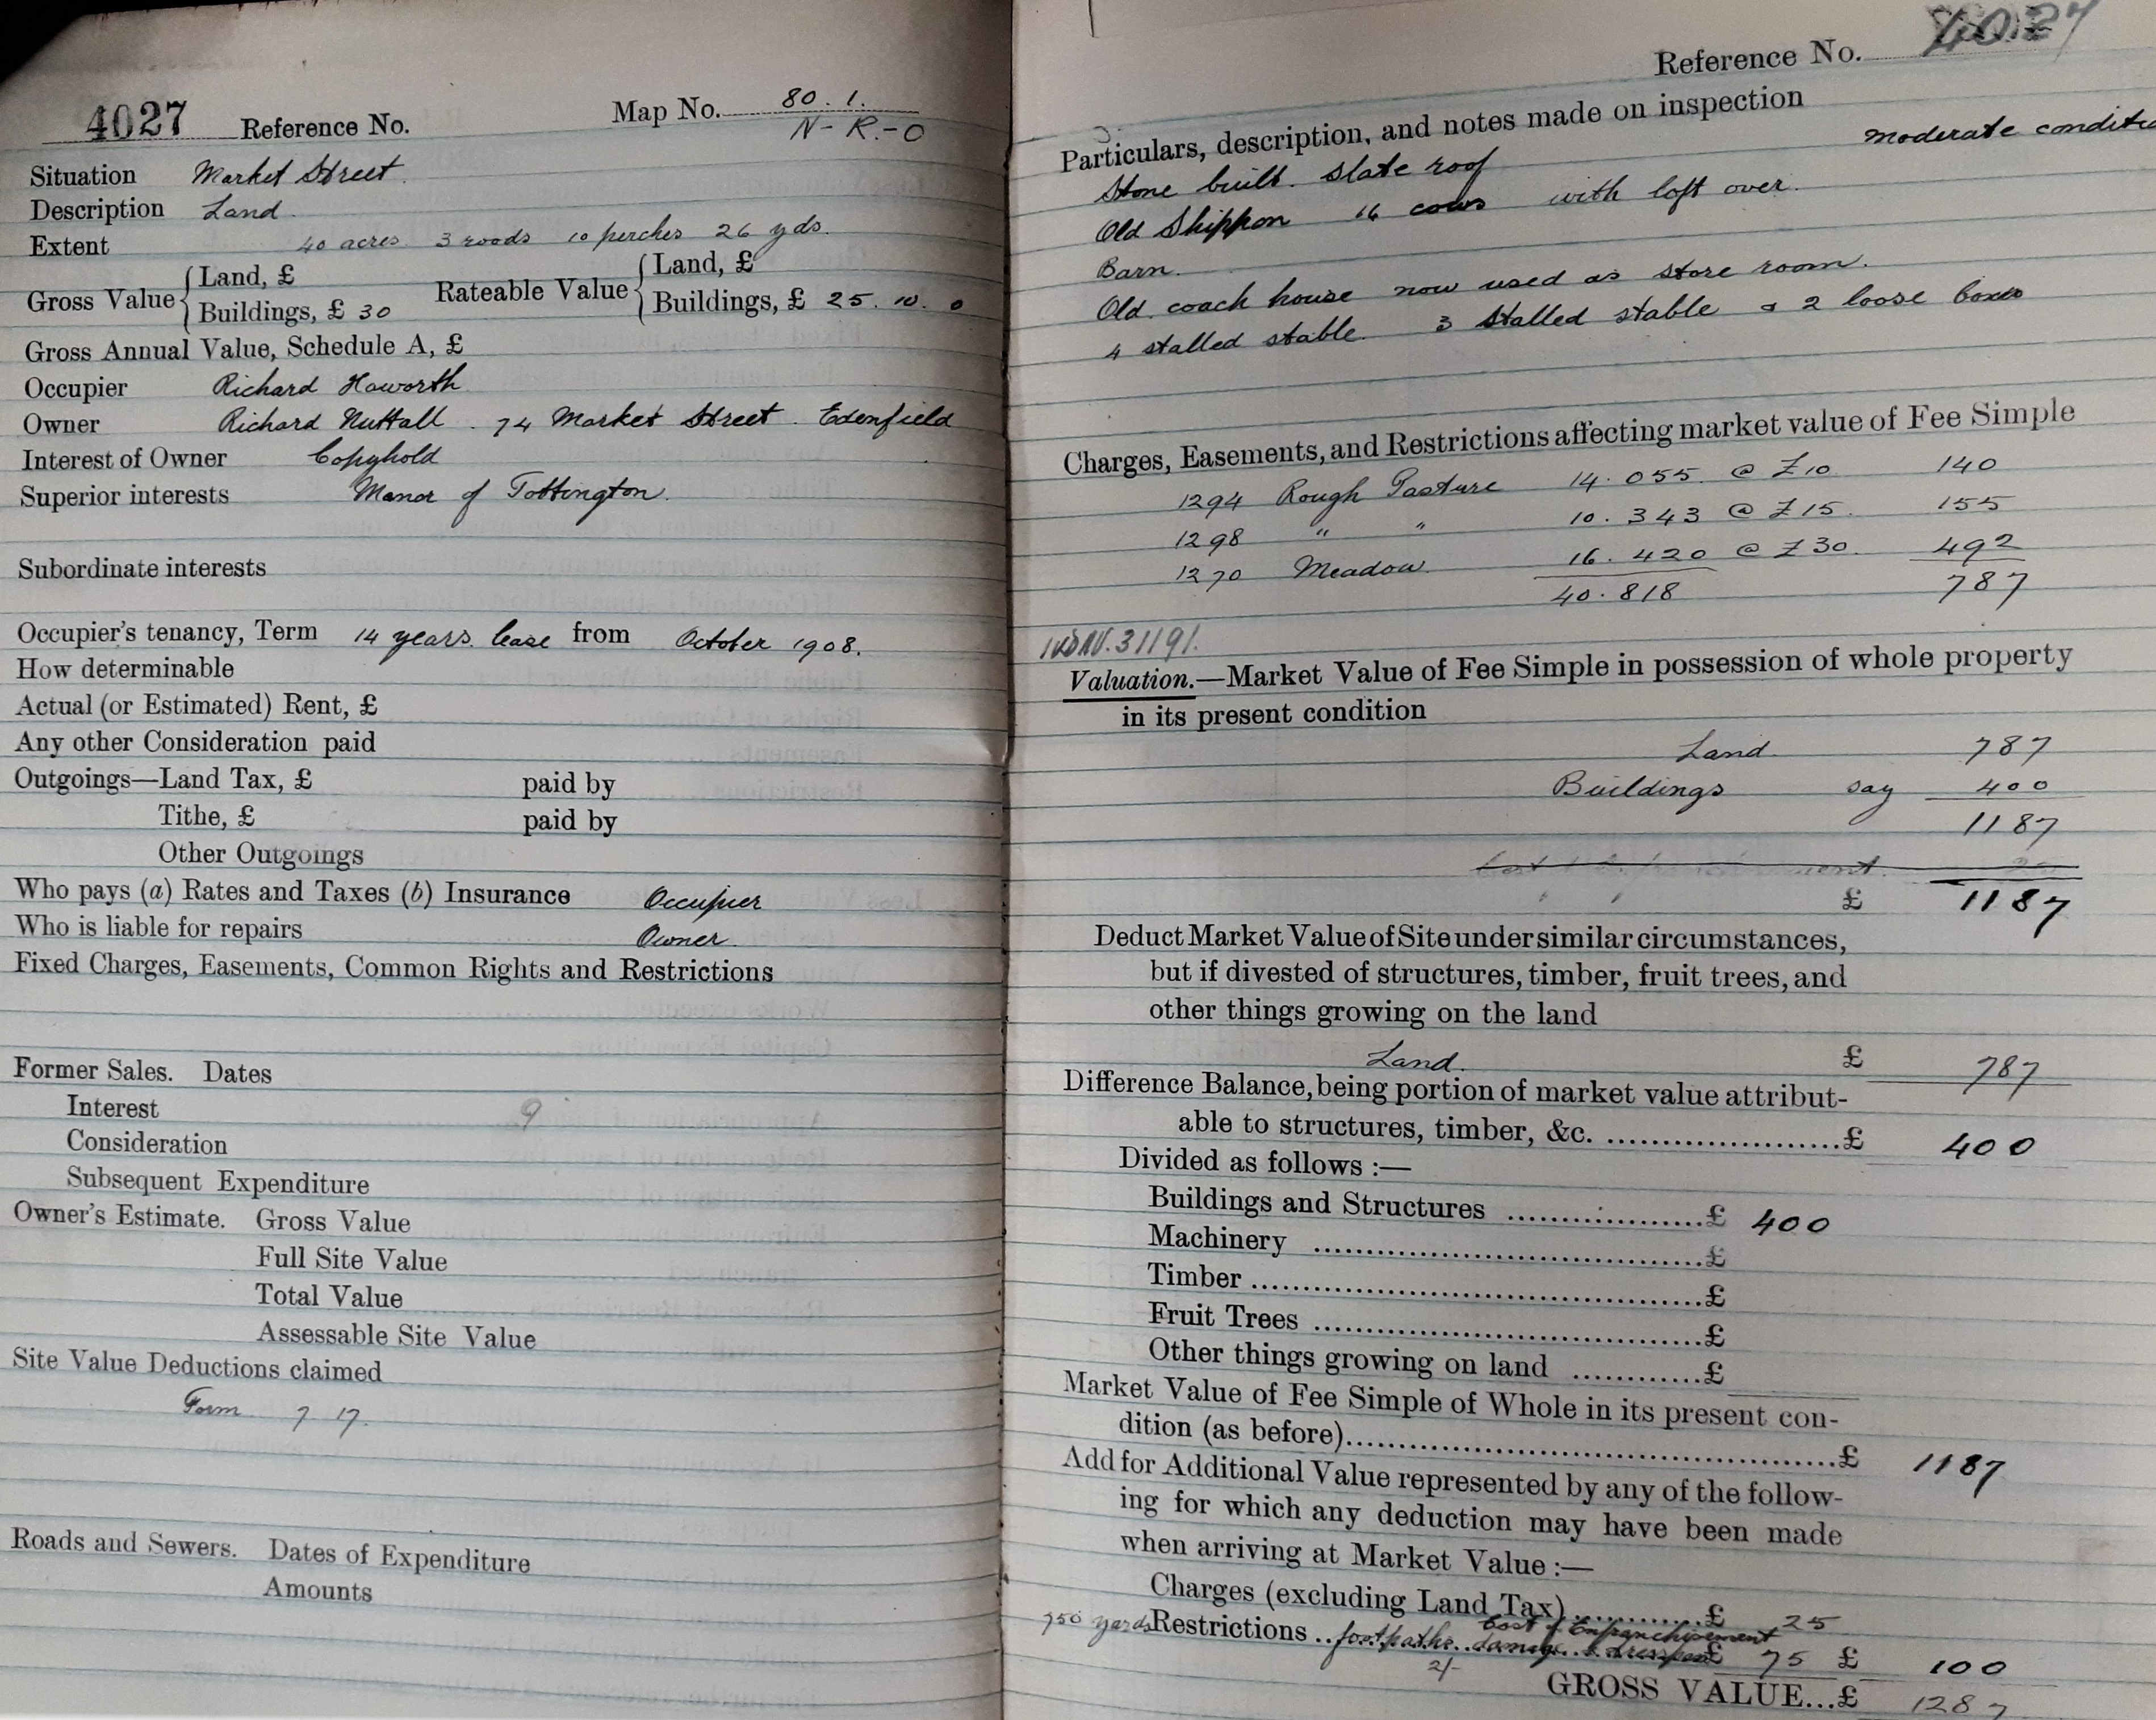 4027 Reference No. Map No. 80. 1.
N-R.-O
Situation Market Street.
Description Land.
Extent 40 acres 3 roods 10 perches 26 yds.
Gross Value { Land, £ Rateable Value { Land, £
Buildings, £ 30 Buildings, £ 25. 10. 0
Gross Annual Value, Schedule A, £
Occupier Richard Haworth
Owner Richard Nuttall. 74 Market Street. Edenfield
Interest of Owner Copyhold
Superior interests Manor of Tottington.
Subordinate interests
Occupier's tenancy, Term 14 years lease from October 1908.
How determinable
Actual (or Estimated) Rent, £
Any other Consideration paid
Outgoings—Land Tax, £ paid by
Tithe, £ paid by
Other Outgoings
Who pays (a) Rates and Taxes (b) Insurance Occupier
Who is liable for repairs Owner.
Fixed Charges, Easements, Common Rights and Restrictions
Former Sales. Dates
Interest 9
Consideration
Subsequent Expenditure
Owner's Estimate. Gross Value
Full Site Value
Total Value
Assessable Site Value
Site Value Deductions claimed
Form 7 17.
Roads and Sewers. Dates of Expenditure
Amounts
Reference No. 4027
Particulars, description, and notes made on inspection
moderate conditio
Stone built. Slate roof
Old Shippon 16 cows with loft over.
Barn.
Old coach house now used as store room.
4 stalled stable. 3 Stalled stable & 2 loose boxes
Charges, Easements, and Restrictions affecting market value of Fee Simple
1294 Rough Pasture 14. 055. @ £10 140
1298 " " 10. 343 @ £15. 155
1270 Meadow. 16. 420 @ £30. 492
40. 818 787
31191.
Valuation.—Market Value of Fee Simple in possession of whole property
in its present condition
Land. 787
Buildings say 400
1187
£ 1187
Deduct Market Value of Site under similar circumstances,
but if divested of structures, timber, fruit trees, and
other things growing on the land
Land. £ 787
Difference Balance, being portion of market value attribut-
able to structures, timber, &c. .....................£ 400
Divided as follows :—
Buildings and Structures ..................£ 400
Machinery .....................................£
Timber ..........................................£
Fruit Trees .....................................£
Other things growing on land ............£
Market Value of Fee Simple of Whole in its present con-
dition (as before)................................................£ 1187
Add for Additional Value represented by any of the follow-
ing for which any deduction may have been made
when arriving at Market Value :—
Charges (excluding Land Tax)............£ 25
Cost of Enfranchisement
750 yards Restrictions ..footpaths. damage & trespass £ 75 £ 100
2/-
GROSS VALUE...£ 1287